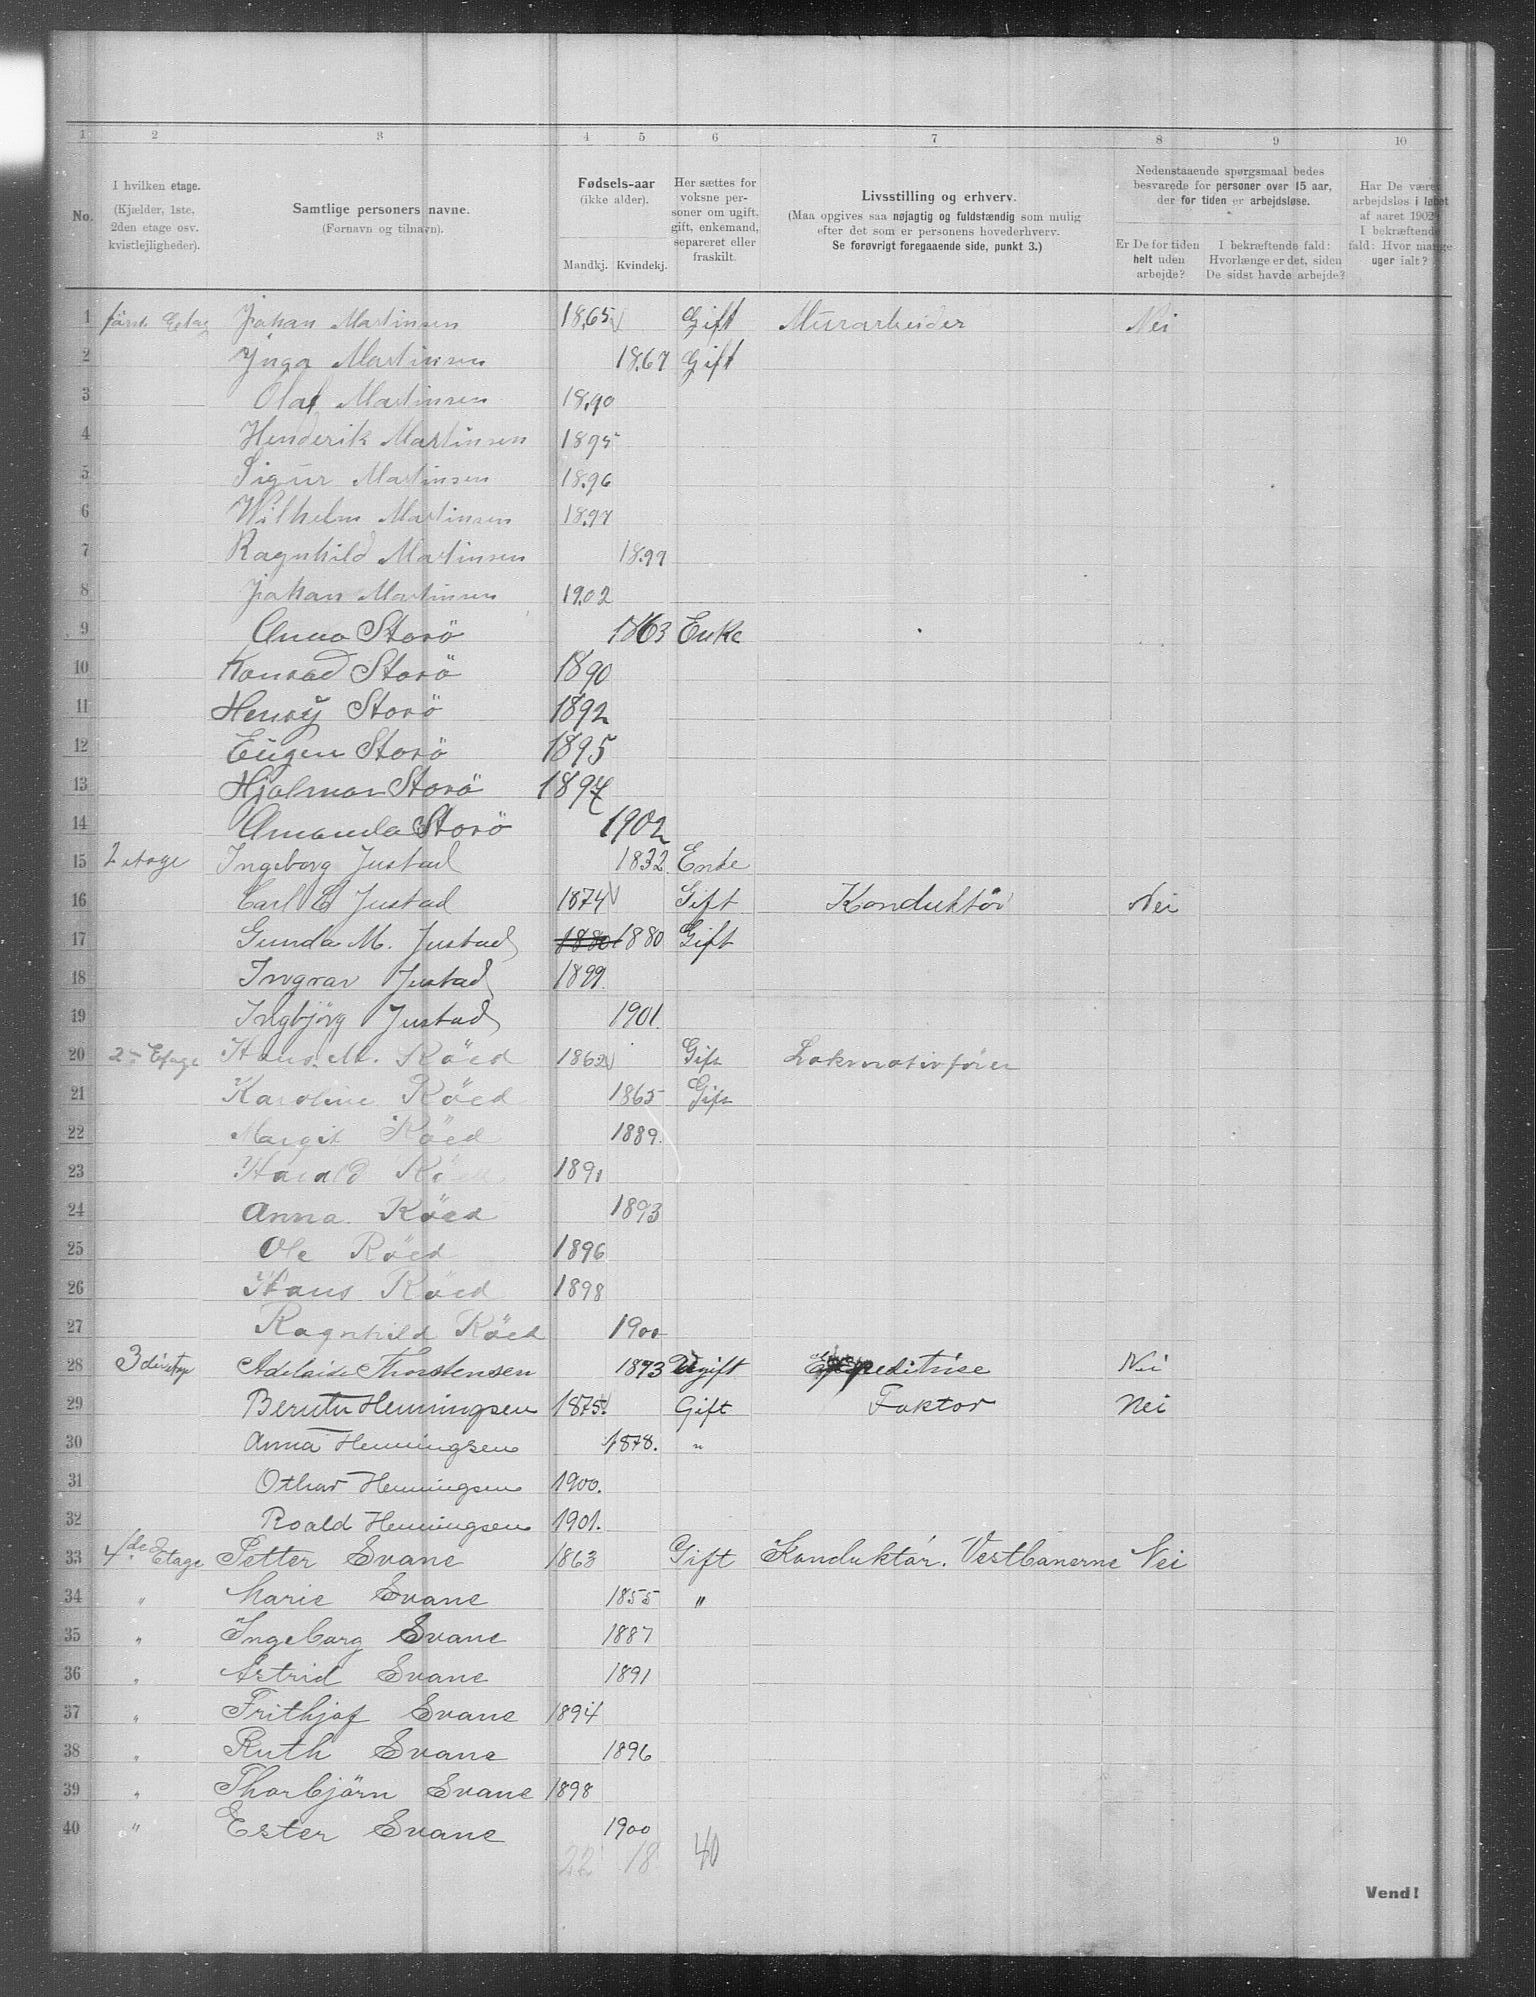 1 2 3 4 5 6 7 8 9 10
No.
I hvilken etage.
(Kjælder, 1ste,
2den etage osv.
kvistlejligheder).
Samtlige personers navne.
(Fornavn og tilnavn).
Fødsels-aar
(ikke alder).
Mandkj. Kvindekj.
Her sættes for
voksne per-
soner om ugift,
gift, enkemand,
separeret eller
fraskilt.
Livsstilling og erhverv.
(Maa opgives saa nøjagtig og fuldstændig som mulig
efter det som er personens hovederhverv.
Se forøvrigt foregaaende side, punkt 3.)
Nedenstaaende spørgsmaal bedes
besvarede for personer over 15 aar,
der for tiden er arbejdsløse.
Er De for tiden
helt uden
arbejde?
I bekræftende fald:
Hvorlænge er det, siden
De sidst havde arbejde?
Har De været
arbejdsløs i løbet
af aaret 1902?
I bekræftende
fald: Hvor mange
uger ialt?
1 Johan Martinsen 1865 Gift Murarbeider Nei
2 Inga Martinsen 1867 Gift
3 Olaf Martinsen 1890
4 Henderik Martinsen 1895
5 Sigur Martinsen 1896
6 Wilhelm Martinsen 1897
7 Ragnhild Martinsen 1899
8 Johan Martinsen 1902
9 Anna Storö 1863 Enke
10 Konrad Storö 1890
11 Henry Storö 1892
12 Eugen Storö 1895
13 Hjalmar Storö 1897
14 Amanda Storö 1902
15 2 etage Ingeborg Justad 1832 Enke
16 Carl E Justad 1874 Gift Konduktör Nei
17 Gunda M. Justad 1880 1880 Gift
18 Ingvar Justad 1899.
19 Ingbjörg Justad 1901.
20 2-Etage Hans. M. Röed 1862 Gift Lokomotivförer
21 Karoline Röed 1865 Gift
22 Margit Röed 1889.
23 Harald Röed 1891
24 Anna Röed 1893
25 Ole Röed 1896
26 Hans Röed 1898
27 Ragnhild Röed 1900
28 3die etage Adelaide Thorstensen 1873 Ugift Expeditrise Nei
29 Berntn Henningsen 1875. Gift Faktor Nei
30 Anna Henningsen 1878. "
31 Othar Henningsen 1900.
32 Roald Henningsen 1901.
33 4de Etage Petter Svane 1863 Gift Konduktör. Vestbanerne Nei
34 " Marie Svane 1855 "
35 " Ingeborg Svane 1887
36 " Astrid Svane 1891
37 " Frithjof Svane 1894
38 " Ruth Svane 1896
39 " Thorbjörn Svane 1898
40 " Ester Svane 1900
22 18 40
Vend!